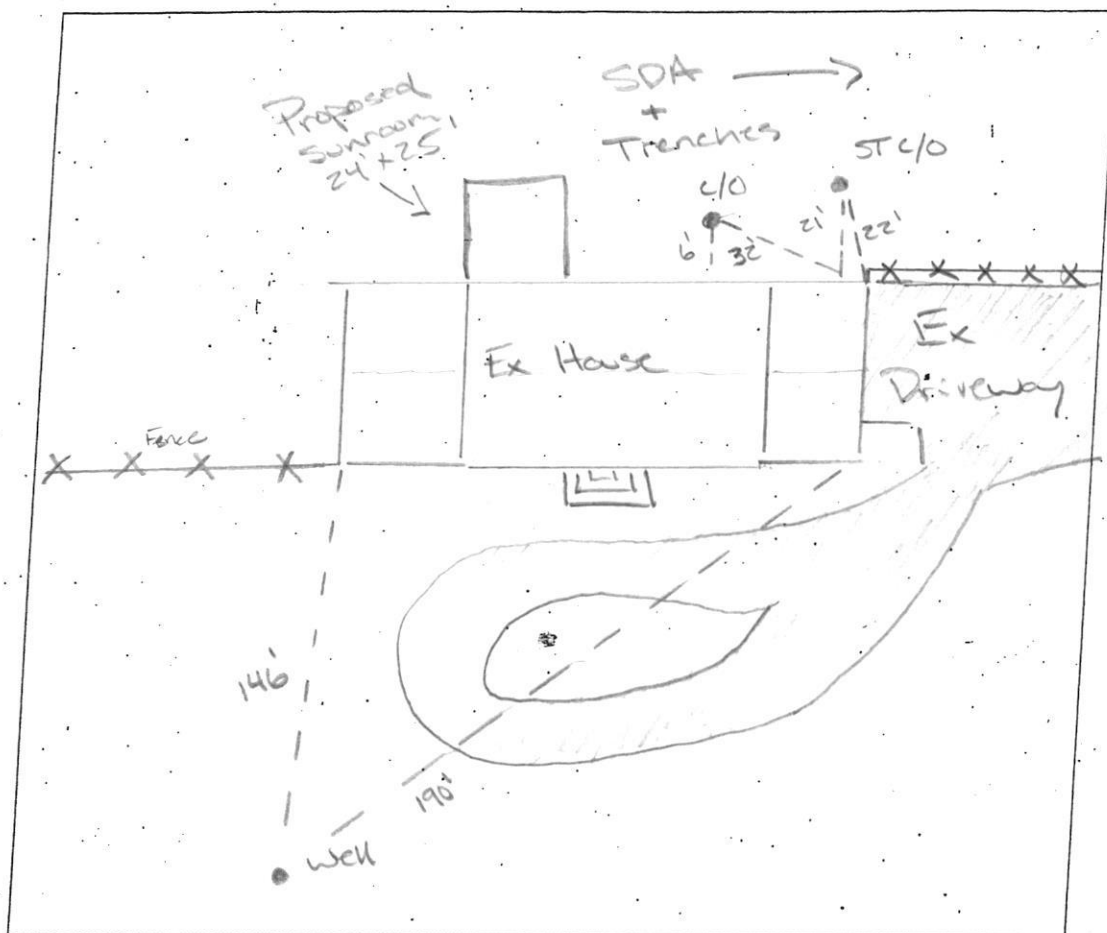 Proposed
Sunroom,
24' x 25'
SDA
+
Trenches
C/O
ST C/O
6'
32'
21'
22'
Ex House
Ex
Driveway
Fence
146'
190'
Well